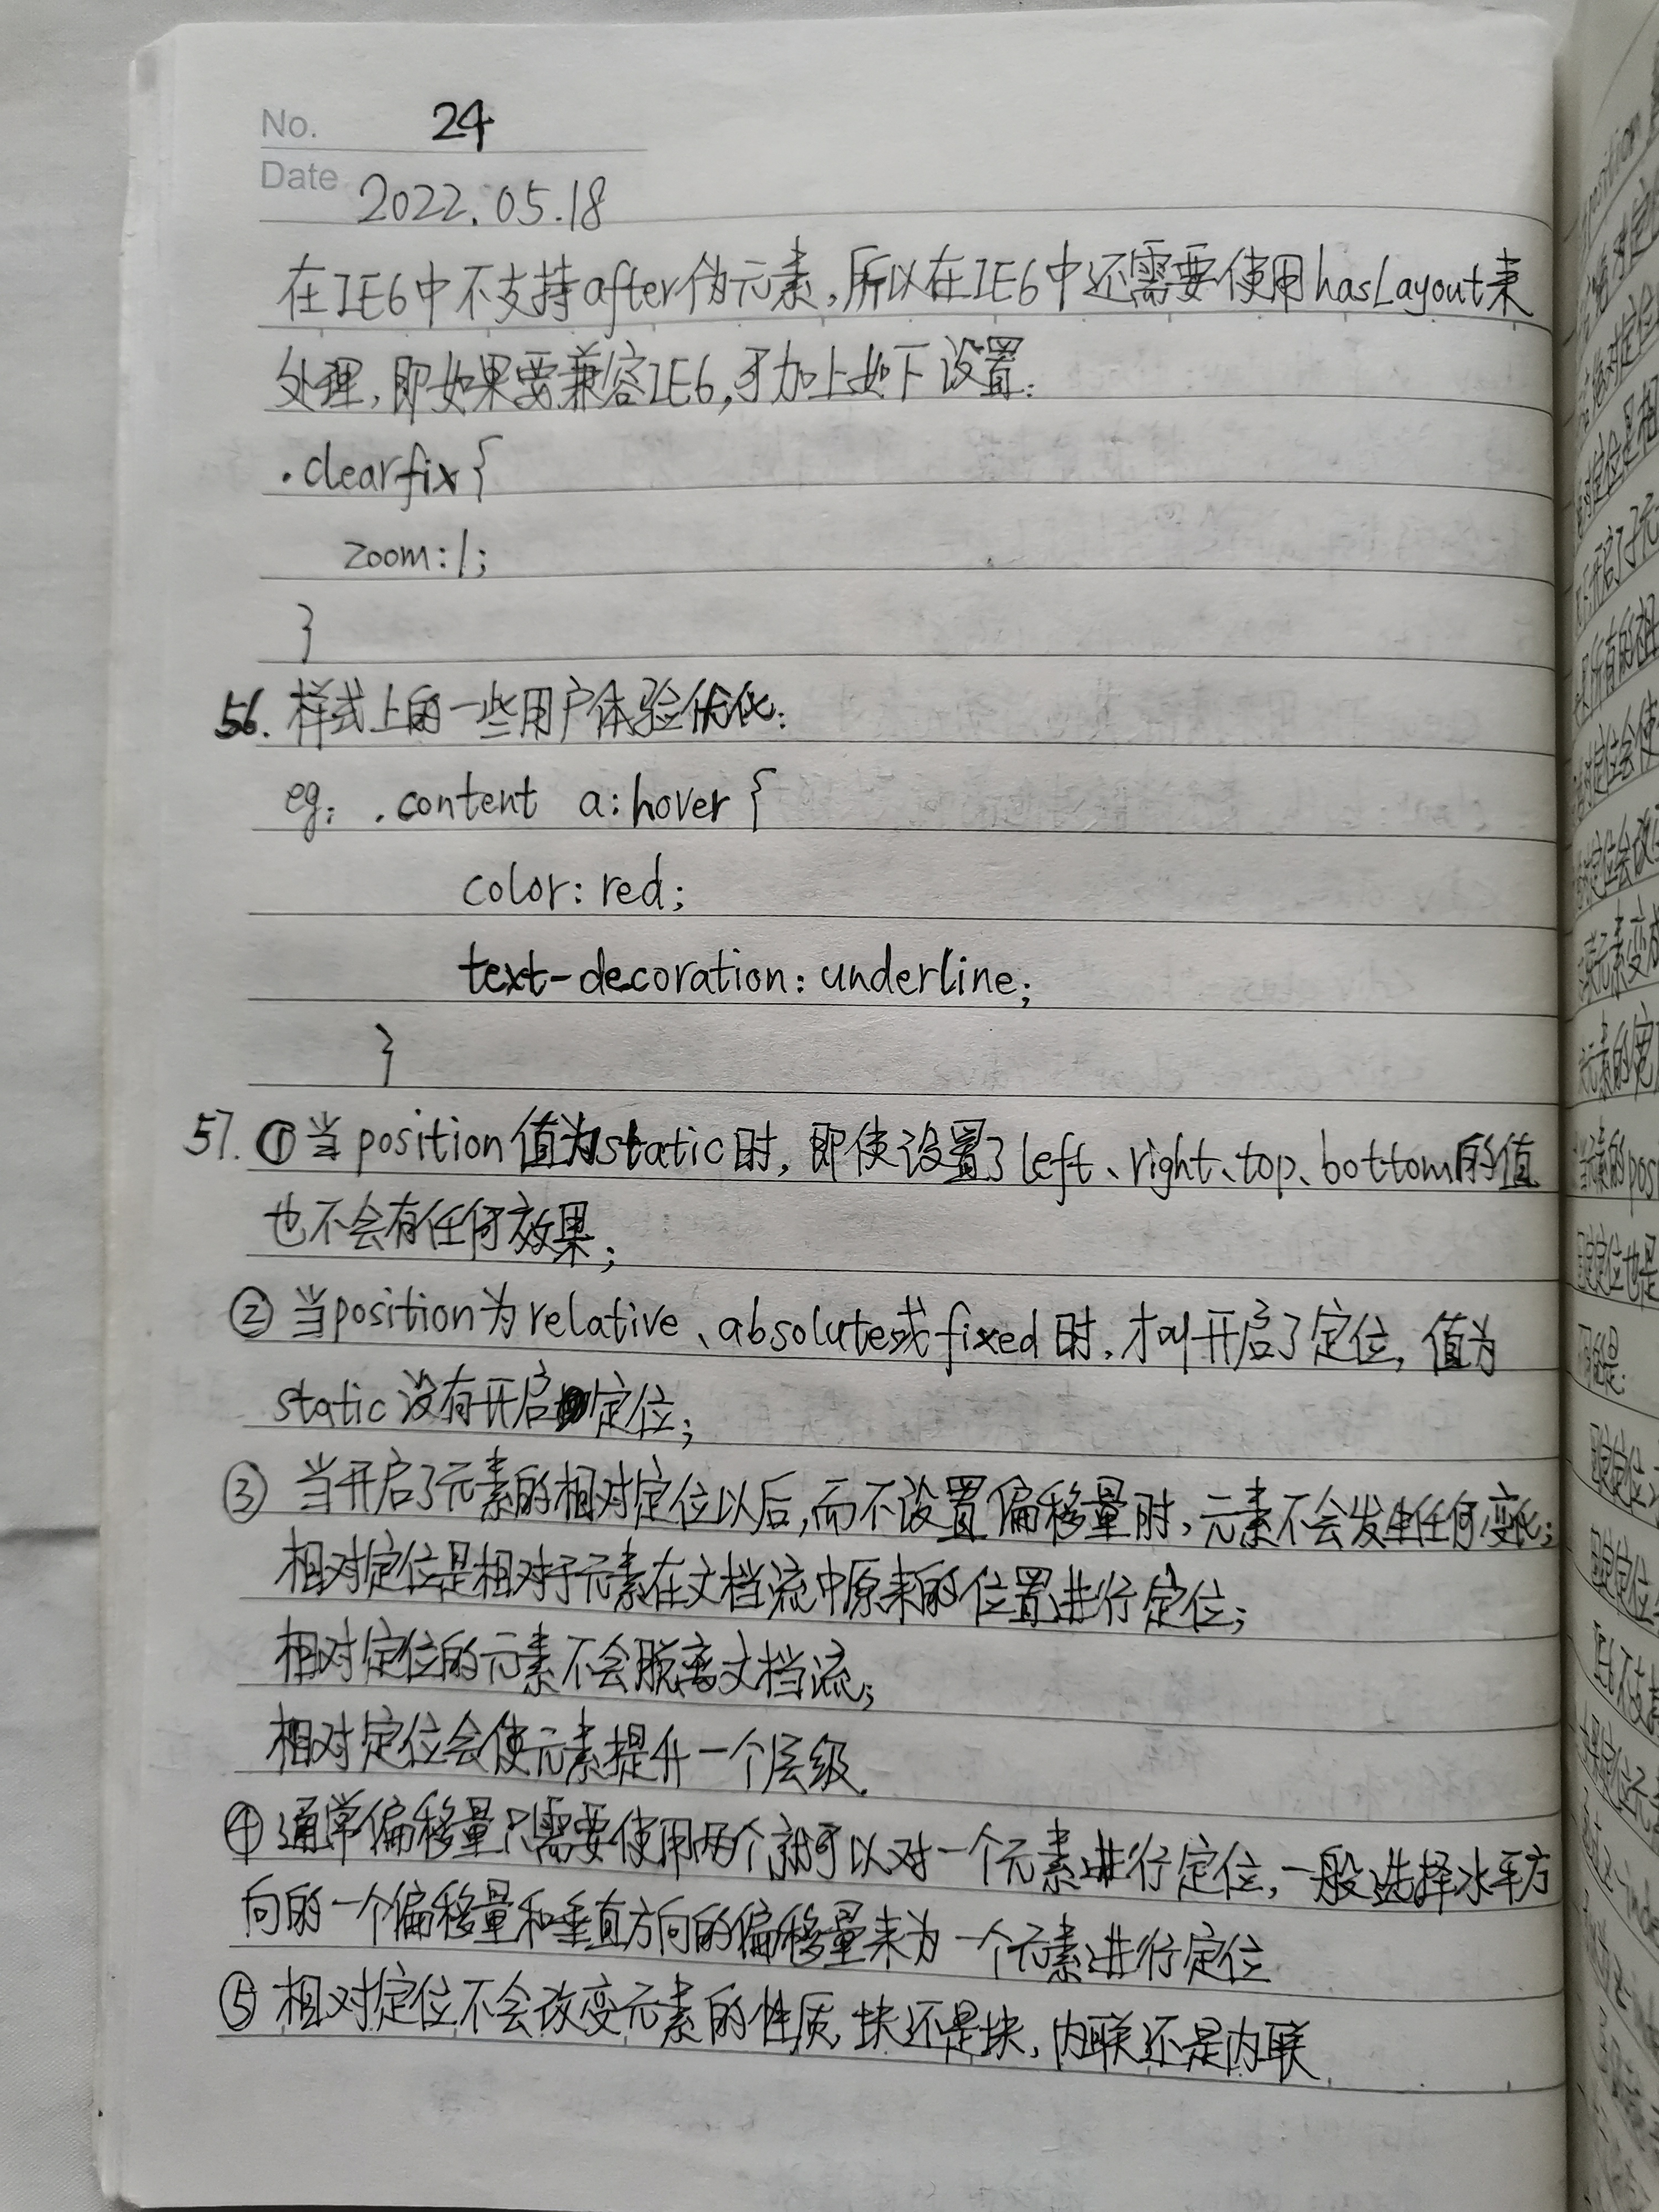 No. 24
Date 2022.05.18
在IE6中不支持after伪元素,所以在IE6中还需要使用hasLayout来
处理,即如果要兼容IE6,可加上如下设置:
.clearfix{
zoom:1;
}
56. 样式上的一些用户体验优化:
eg: .content a:hover{
color: red;
text-decoration: underline;
}
57. ①当position值为static时,即使设置了left、right、top、bottom的值
也不会有任何效果;
②当position为relative、absolute或fixed时,才叫开启了定位,值为
static没有开启定位;
③ 当开启了元素的相对定位以后,而不设置偏移量时,元素不会发生任何变化;
相对定位是相对于元素在文档流中原来的位置进行定位;
相对定位的元素不会脱离文档流;
相对定位会使元素提升一个层级.
④通常偏移量只需要使用两个就可以对一个元素进行定位,一般选择水平方
向的一个偏移量和垂直方向的偏移量来为一个元素进行定位
⑤相对定位不会改变元素的性质,块还是块,内联还是内联